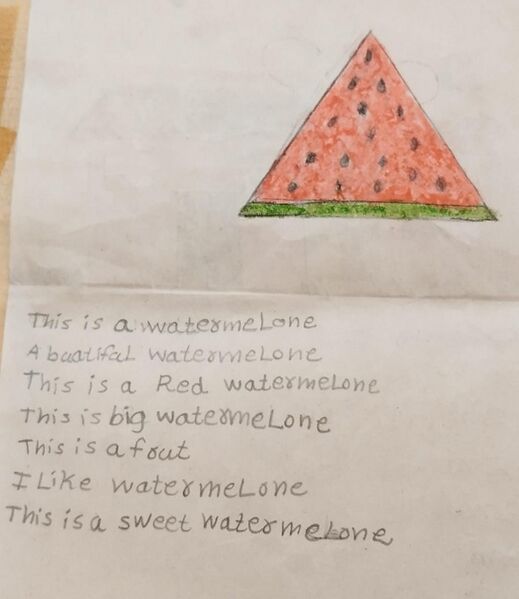 This is a watermeLone
A buatifaL watermeLone
This is a Red watermeLone
This is big watermeLone
This is a frout
I Like watermeLone
This is a sweet watermeLone